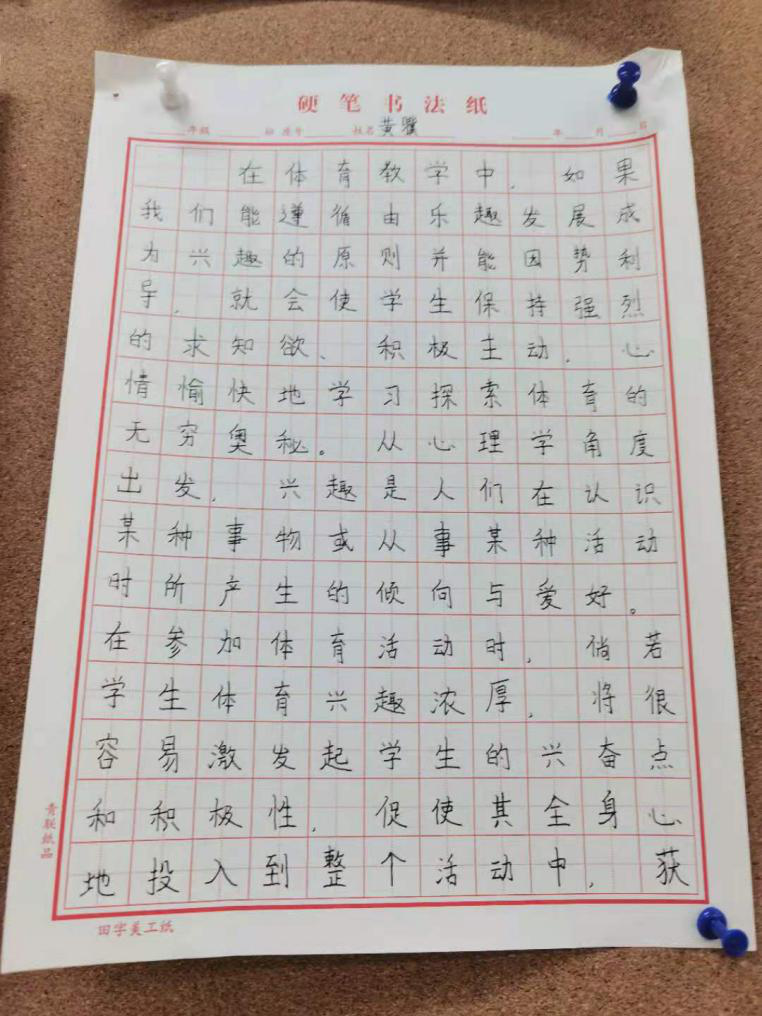 硬笔书法纸
年级 班 座号 姓名 黄骥 年 月 日
在体育教学中，如果
我们能遵循由乐趣发展成
为兴趣的原则并能因势利
导，就会使学生保持强烈
的求知欲、积极主动，心
情愉快地学习探索体育的
无穷奥秘。从心理学角度
出发，兴趣是人们在认识
某种事物或从事某种活动
时所产生的倾向与爱好。
在参加体育活动时，倘若
学生体育兴趣浓厚，将很
容易激发起学生的兴奋点
和积极性，促使其全身心
地投入到整个活动中，获
青联纸品
田字美工纸